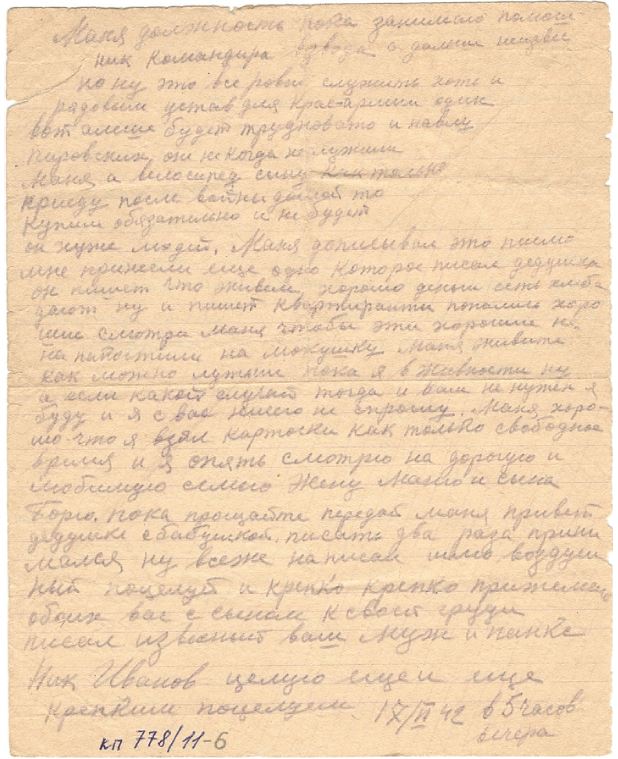 Маня должность пока занимаю помощ
ник командира взвода а дальше неизве
но ну это все ровно служить хоть и
рядовым устав для крас-армии один
вот алеше будет трудновато и павлу
они некогда не служили
Маня а велосипед сыну как только
приеду после войны домой то
купим обязательно и не будет
он хуже людей. Маня дописывал это письмо
мне принесли еще одно которое писал дедушка
он пишет что живем, хорошо деньги есть хлеба
дают ну и пишет квартиранты попались хоро
шие смотри Маня чтобы эти хорошие не
на макушку Маня живите
как можно лутьше пока я в живности ну
а если какой случай тогда и вам не нужен я
буду и я с вас ничего не спрошу. Маня хоро-
шо что я взял карточки как только свободное
время и я опять смотрю на дорогую и
любимую семью Жену Маню и сына
Борю. пока прощайте передай Маня привет
дедушке с бабушкой. писать два раза прини
мался ну всеже написал шлю воздуш
ный поцелуй и крепко крепко прижемаю
обоих вас с сыном к своей груди
писал известный ваш муж и папка
Ник Иванов целую еще и еще
крепким поцелуем 17/II 42 в 5 часов
вечера
кп 778/11-6